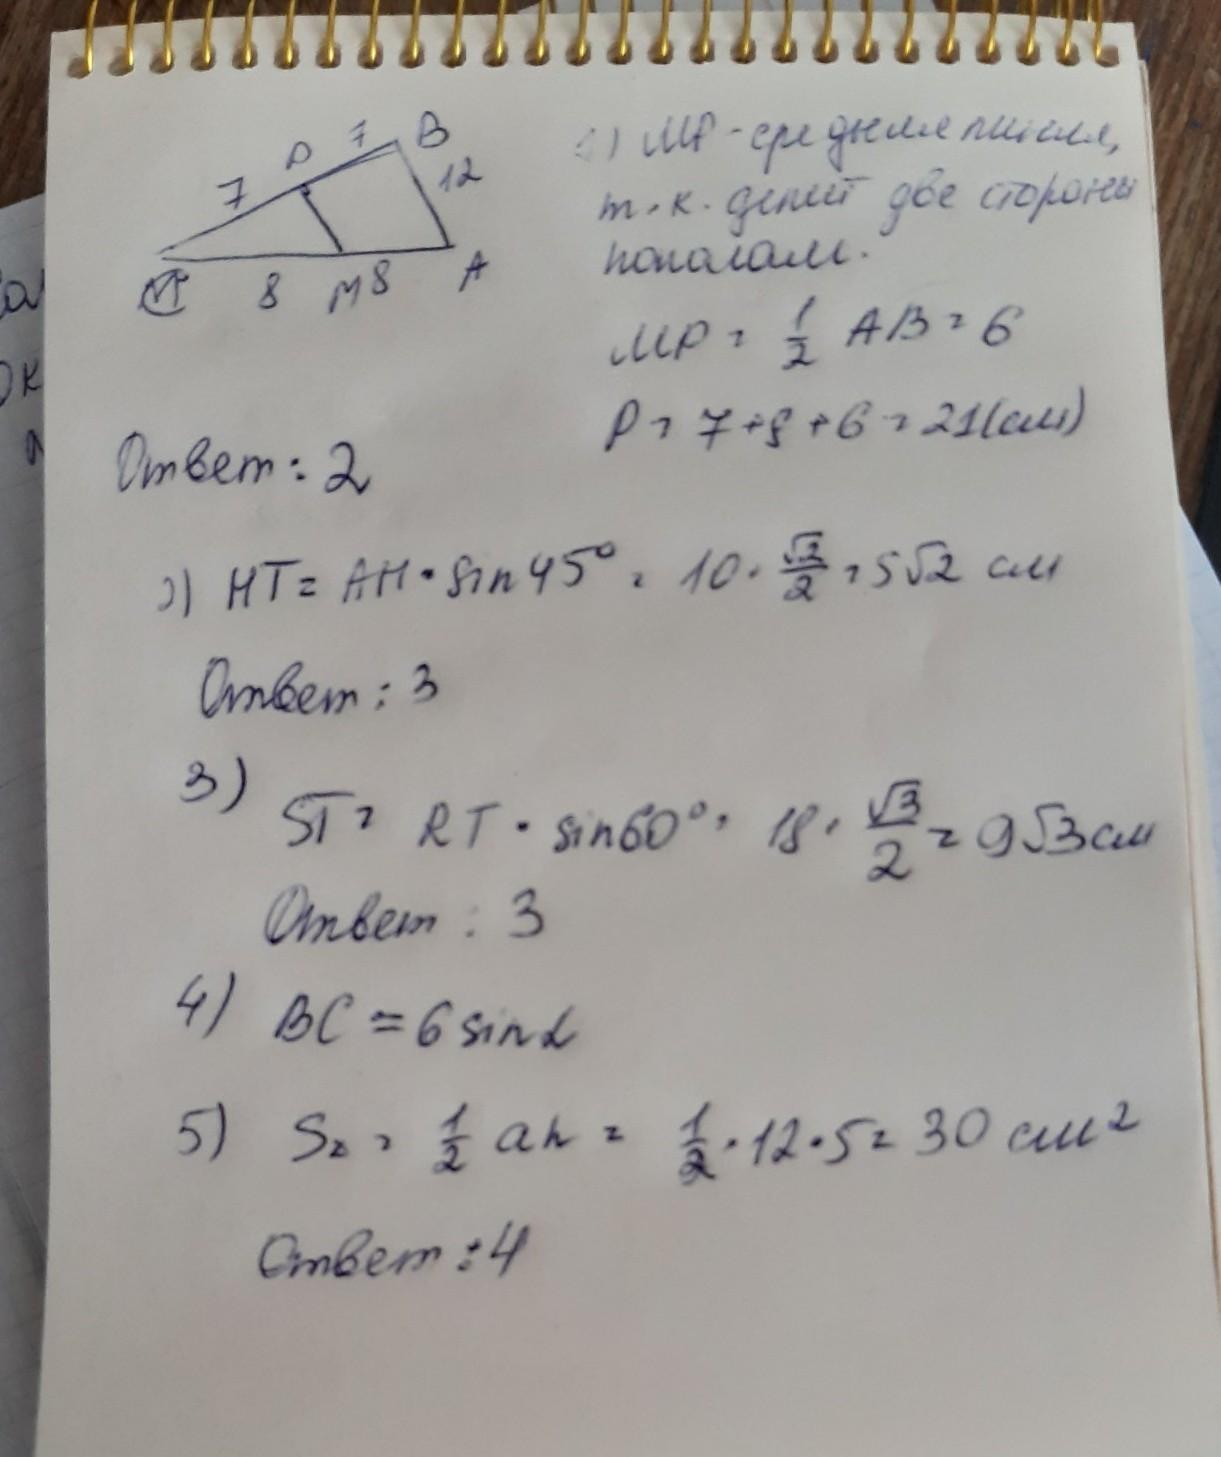 P 7 B
7 12
8 M 8 A
1) MP - средняя линия,
т.к. делит две стороны
пополам.
MP = 1/2 AB = 6
P = 7+8+6 = 21(см)
Ответ: 2
2) HT = AH · sin45° = 10 · √2/2 = 5√2 см
Ответ: 3
3) ST = RT · sin60° = 18 · √3/2 = 9√3 см
Ответ: 3
4) BC = 6 sin α
5) S△ = 1/2 ah = 1/2 · 12 · 5 = 30 см²
Ответ: 4